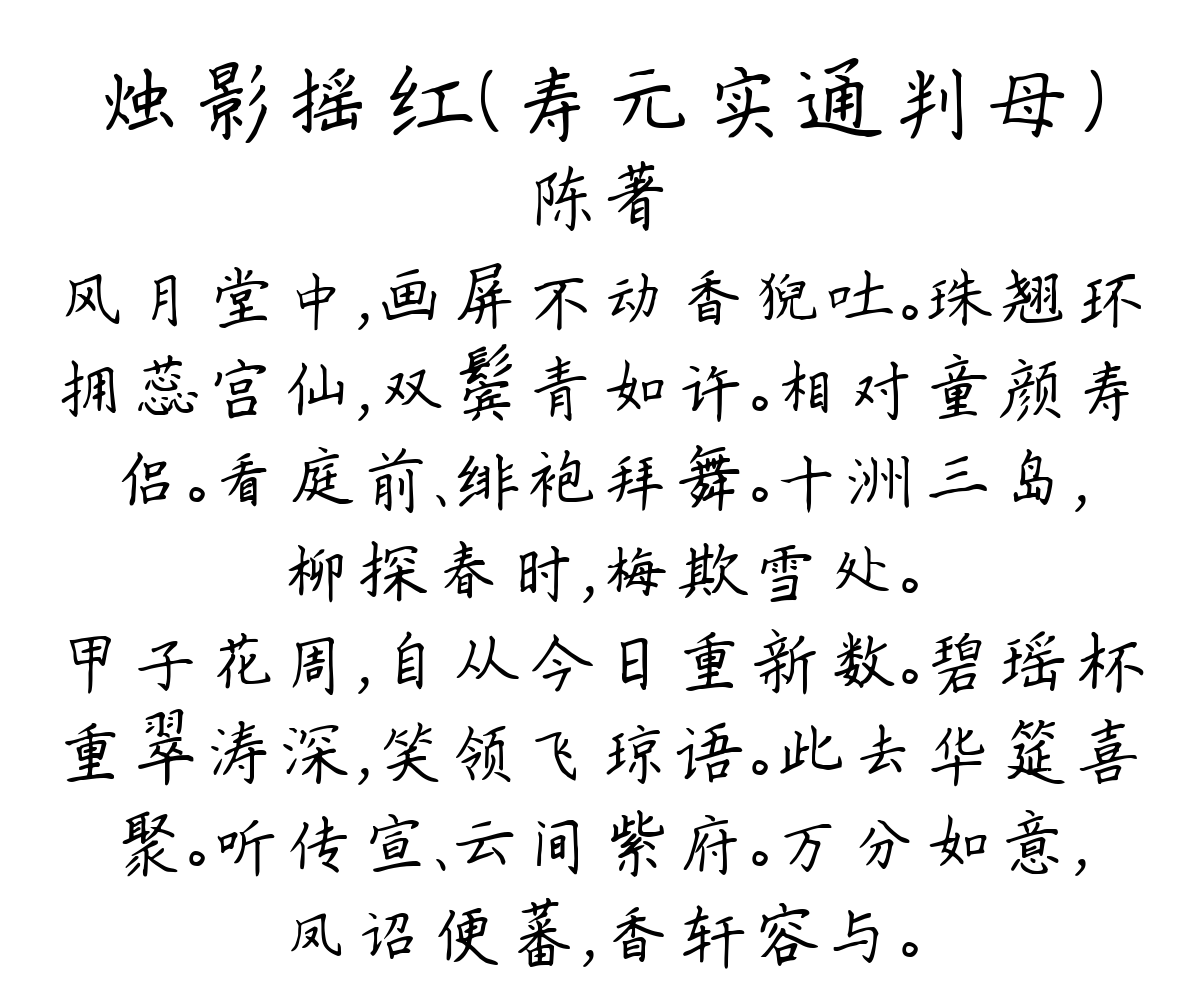 烛影摇红(寿元实通判母)
陈著
风月堂中,画屏不动香猊吐。珠翘环
拥蕊宫仙,双鬓青如许。相对童颜寿
侣。看庭前、绯袍拜舞。十洲三岛,
柳探春时,梅欺雪处。
甲子花周,自从今日重新数。碧瑶杯
重翠涛深,笑领飞琼语。此去华筵喜
聚。听传宣、云间紫府。万分如意,
凤诏便蕃,香轩容与。